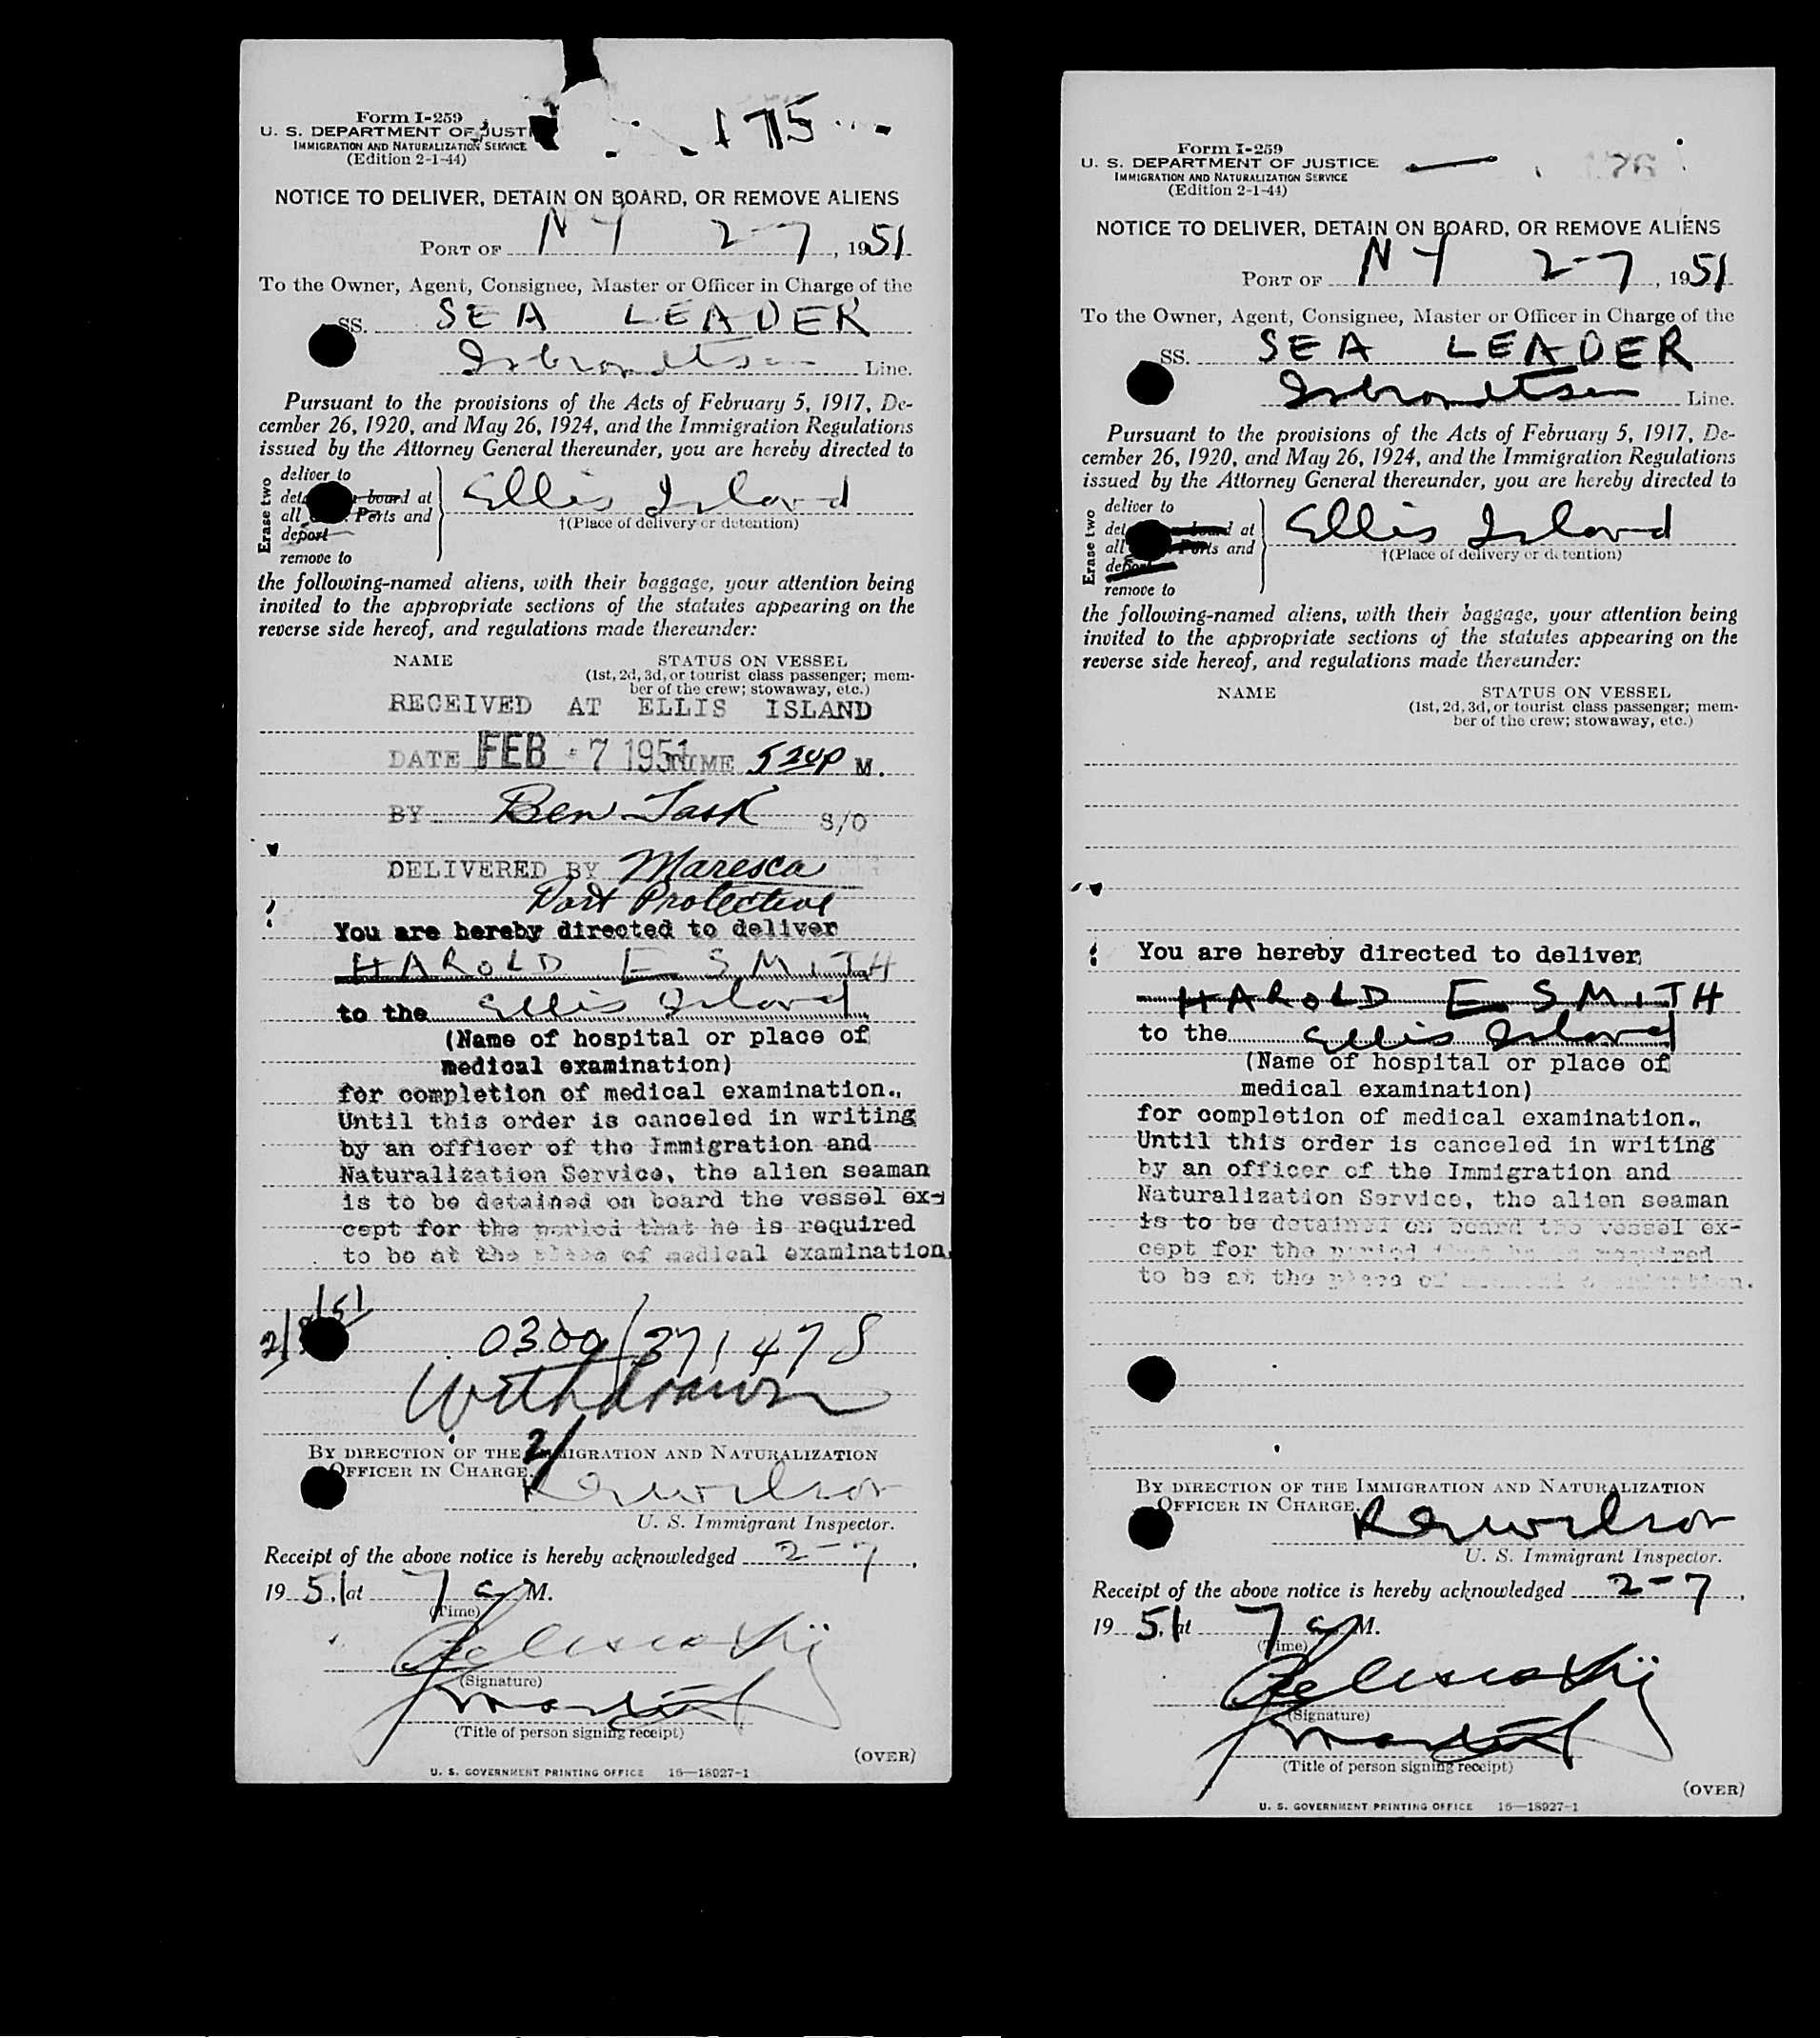 175
Form I-259
U. S. DEPARTMENT OF JUSTI
IMMIGRATION AND NATURALIZATION SERVICE
(Edition 2-1-44)
NOTICE TO DELIVER, DETAIN ON BOARD, OR REMOVE ALIENS
PORT OF NY 2-7, 1951
To the Owner, Agent, Consignee, Master or Officer in Charge of the
SS. SEA LEADER
Isbrandtsen Line.
Pursuant to the provisions of the Acts of February 5, 1917, De-
cember 26, 1920, and May 26, 1924, and the Immigration Regulations
issued by the Attorney General thereunder, you are hereby directed to
Erase two
deliver to
det board at
all Ports and
deport
remove to
Ellis Island
†(Place of delivery or detention)
the following-named aliens, with their baggage, your attention being
invited to the appropriate sections of the statutes appearing on the
reverse side hereof, and regulations made thereunder:
NAME STATUS ON VESSEL
(1st, 2d, 3d, or tourist class passenger; mem-
ber of the crew; stowaway, etc.)
RECEIVED AT ELLIS ISLAND
DATE FEB 7 1951 TIME 520P M.
BY Ben Task S/O
DELIVERED BY Maresca
Port Protective
You are hereby directed to deliver
HAROLD E SMITH
to the Ellis Island
(Name of hospital or place of
medical examination)
for completion of medical examination.
Until this order is canceled in writing
by an officer of the Immigration and
Naturalization Service, the alien seaman
is to be detained on board the vessel ex-
cept for the period that he is required
to be at the place of medical examination.
0300/371478
Withdrawn
BY DIRECTION OF THE IMMIGRATION AND NATURALIZATION
OFFICER IN CHARGE.
U. S. Immigrant Inspector.
Receipt of the above notice is hereby acknowledged 2-7,
1951, at 7 a M.
(Time)
(Signature)
(Title of person signing receipt)
(OVER)
U. S. GOVERNMENT PRINTING OFFICE 16—18927-1
Form I-259
U. S. DEPARTMENT OF JUSTICE
IMMIGRATION AND NATURALIZATION SERVICE
(Edition 2-1-44)
NOTICE TO DELIVER, DETAIN ON BOARD, OR REMOVE ALIENS
PORT OF NY 2-7, 1951
To the Owner, Agent, Consignee, Master or Officer in Charge of the
SS. SEA LEADER
Isbrandtsen Line.
Pursuant to the provisions of the Acts of February 5, 1917, De-
cember 26, 1920, and May 26, 1924, and the Immigration Regulations
issued by the Attorney General thereunder, you are hereby directed to
Erase two
deliver to
det board at
all Ports and
deport
remove to
Ellis Island
†(Place of delivery or detention)
the following-named aliens, with their baggage, your attention being
invited to the appropriate sections of the statutes appearing on the
reverse side hereof, and regulations made thereunder:
NAME STATUS ON VESSEL
(1st, 2d, 3d, or tourist class passenger; mem-
ber of the crew; stowaway, etc.)
You are hereby directed to deliver
HAROLD E SMITH
to the Ellis Island
(Name of hospital or place of
medical examination)
for completion of medical examination.
Until this order is canceled in writing
by an officer of the Immigration and
Naturalization Service, the alien seaman
is to be detained on board the vessel ex-
cept for the period that he is required
to be at the place of medical examination.
BY DIRECTION OF THE IMMIGRATION AND NATURALIZATION
OFFICER IN CHARGE.
U. S. Immigrant Inspector.
Receipt of the above notice is hereby acknowledged 2-7,
1951, at 7 a M.
(Time)
(Signature)
(Title of person signing receipt)
(OVER)
U. S. GOVERNMENT PRINTING OFFICE 16—18927-1